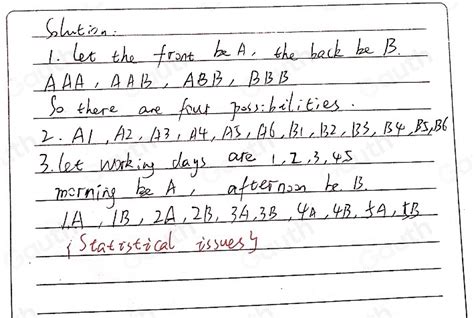 Solution:
1. let the front be A, the back be B.
AAA, AAB, ABB, BBB
So there are four possibilities.
2. A1, A2, A3, A4, A5, A6, B1, B2, B3, B4, B5, B6
3. let working days are 1, 2, 3, 45
morning be A, afternoon be B.
1A, 1B, 2A, 2B, 3A, 3B, 4A, 4B, 5A, 5B
{Statistical issues}